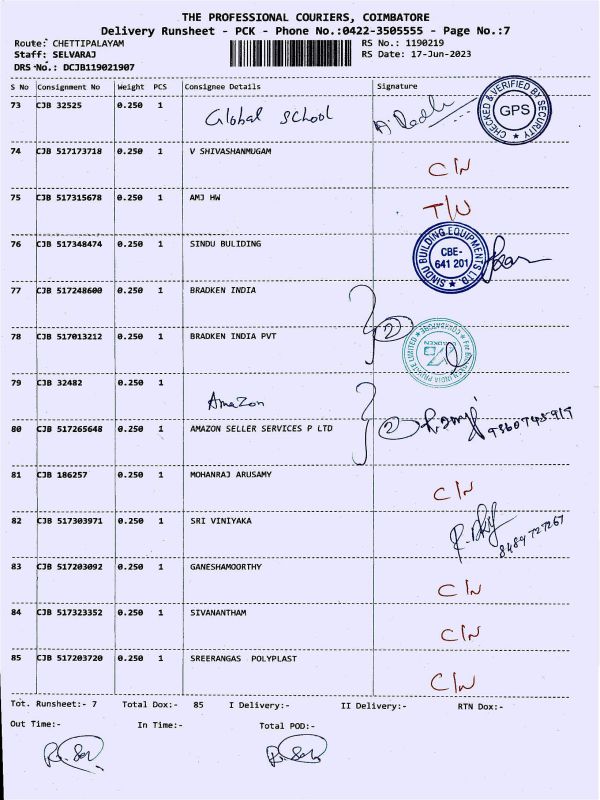 THE PROFESSIONAL COURIERS, COIMBATORE
Delivery Runsheet - PCK - Phone No.:0422-3505555 - Page No.:7
Route: CHETTIPALAYAM RS No.: 1190219
Staff: SELVARAJ RS Date: 17-Jun-2023
DRS No.: DCJB119021907
S No Consignment No Weight PCS Consignee Details Signature
73 CJB 32525 0.250 1 Global School
CHECKED & VERIFIED BY SECURITY
GPS
74 CJB 517173718 0.250 1 V SHIVASHANMUGAM
75 CJB 517315678 0.250 1 AMJ HW
76 CJB 517348474 0.250 1 SINDU BULIDING
SINDU BUILDING EQUIPMENTS
CBE-
641 201
77 CJB 517248600 0.250 1 BRADKEN INDIA
2
78 CJB 517013212 0.250 1 BRADKEN INDIA PVT
79 CJB 32482 0.250 1 Amazon
80 CJB 517265648 0.250 1 AMAZON SELLER SERVICES P LTD 2
81 CJB 186257 0.250 1 MOHANRAJ ARUSAMY
82 CJB 517303971 0.250 1 SRI VINIYAKA
83 CJB 517203092 0.250 1 GANESHAMOORTHY
84 CJB 517323352 0.250 1 SIVANANTHAM
85 CJB 517203720 0.250 1 SREERANGAS POLYPLAST
Tot. Runsheet:- 7 Total Dox:- 85 I Delivery:- II Delivery:- RTN Dox:-
Out Time:- In Time:- Total POD:-